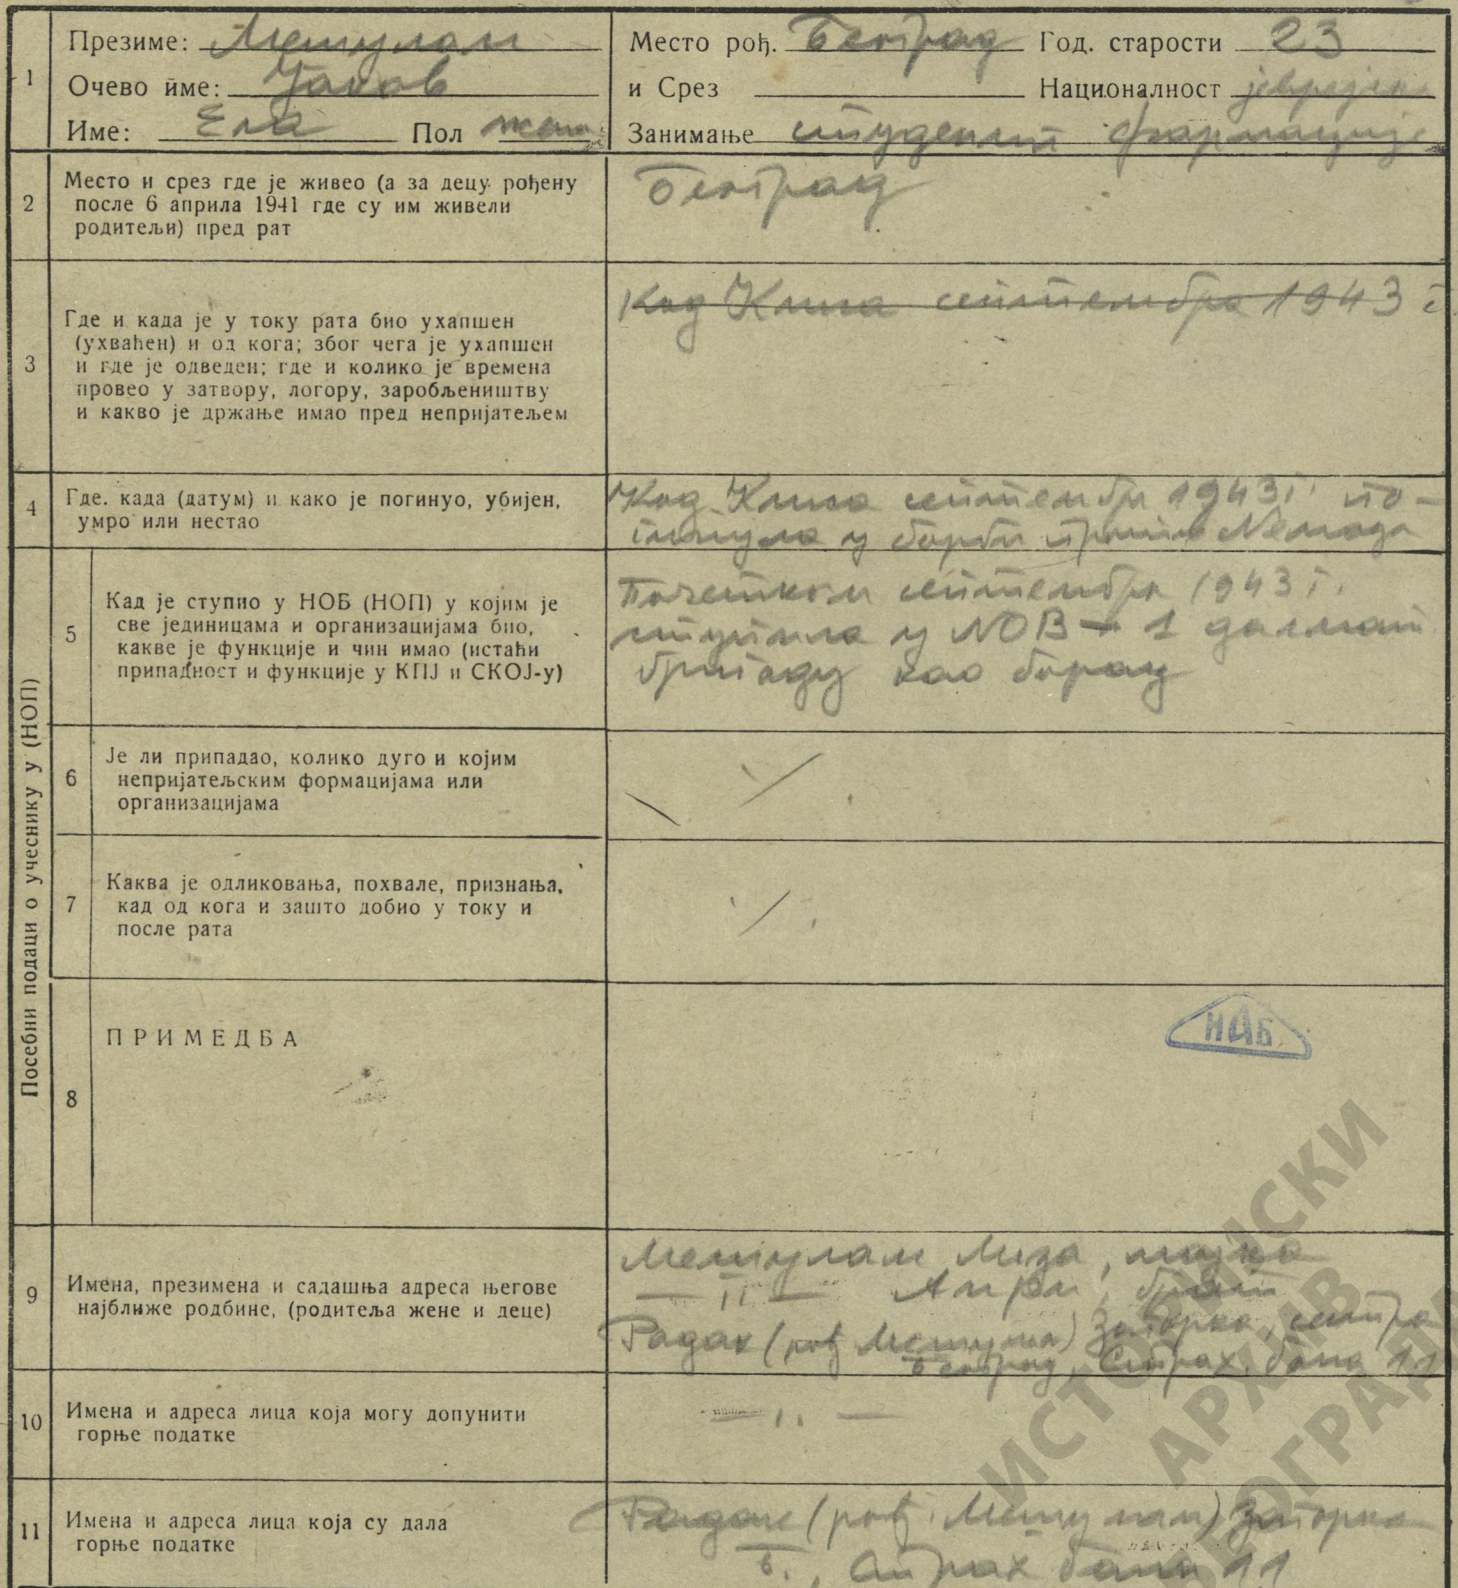 1
Презиме: Мешулам
Место рођ. Београд Год. старости 23
Очево име: Јаков
и Срез Националност јеврејска
Име: Ела Пол жен.
Занимање студент фармације
2
Место и срез где је живео (а за децу рођену
после 6 априла 1941 где су им живели
родитељи) пред рат
Београд
3
Где и када је у току рата био ухапшен
(ухваћен) и од кога; због чега је ухапшен
и где је одведен; где и колико је времена
провео у затвору, логору, заробљеништву
и какво је држање имао пред непријатељем
Код Книна септембра 1943 г
4
Где. када (датум) и како је погинуо, убијен,
умро или нестао
Код Книна септембра 1943 г. по-
гинула у борби против Nемаца
Посебни подаци о учеснику у (НОП)
5
Кад је ступио у НОБ (НОП) у којим је
све јединицама и организацијама био,
какве је функције и чин имао (истаћи
припадност и функције у КПЈ и СКОЈ-у)
Почетком септембра 1943 г.
ступила у NOB – 1 далмат
бригаду као борац
6
Је ли припадао, колико дуго и којим
непријатељским формацијама или
организацијама
7
Каква је одликовања, похвале, признања,
кад од кога и зашто добио у току и
после рата
8
ПРИМЕДБА
ИАБ
9
Имена, презимена и садашња адреса његове
најближе родбине, (родитеља жене и деце)
Мешулам Лиза, мајка
— 11 — Анри, брат
Радак (рођ Мешулам) Загорка, сестра
Београд, Страх. бана 11
10
Имена и адреса лица која могу допунити
горње податке
— 11 —
11
Имена и адреса лица која су дала
горње податке
Радак (рођ. Мешулам) Загорка
Б., Страх бана 11
ИСТОРИЈСКИ
АРХИВ
БЕОГРАДА